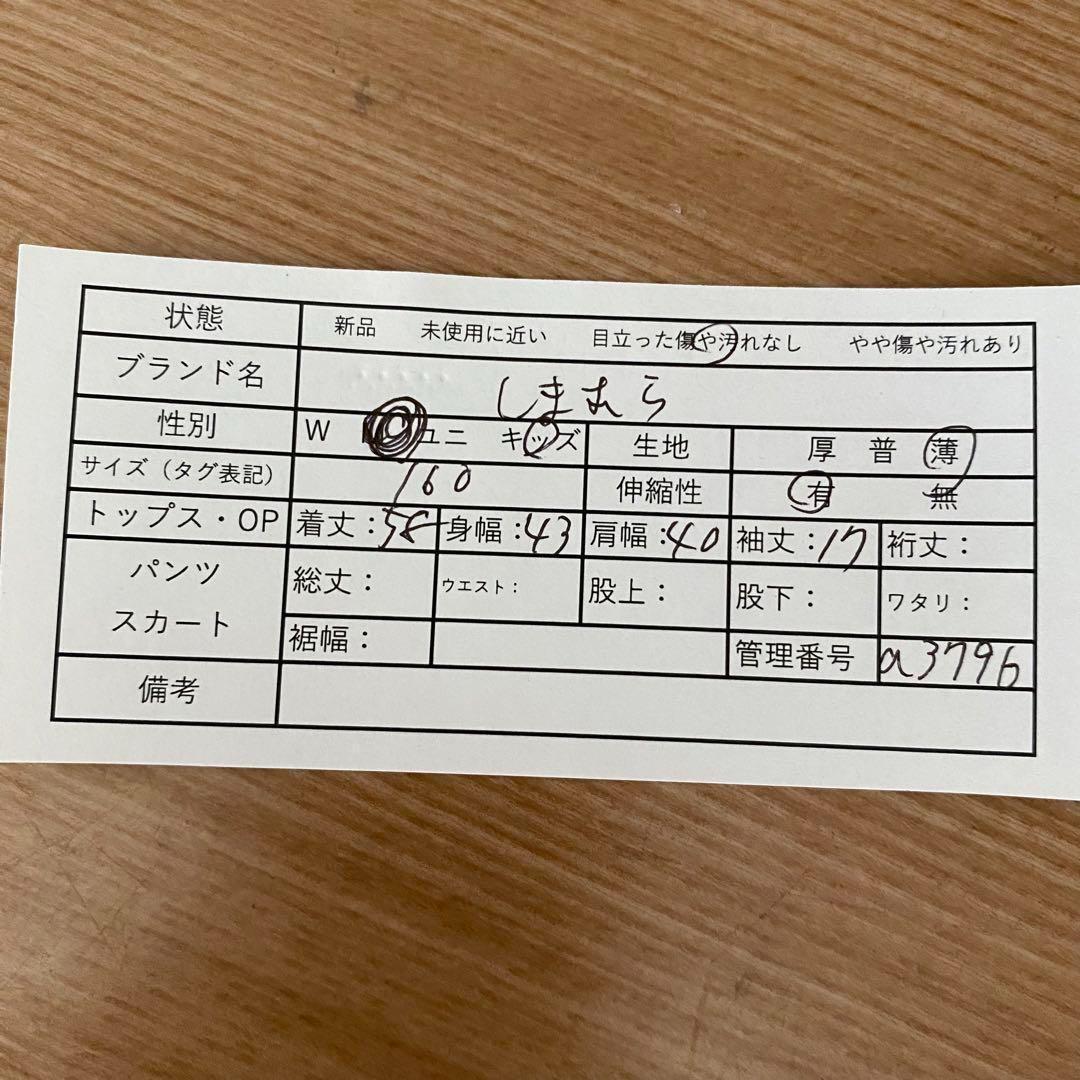 状態 新品 未使用に近い 目立った傷や汚れなし やや傷や汚れあり
ブランド名 しまむら
性別 W ユニ キッズ 生地 厚 普 薄
サイズ（タグ表記） 160 伸縮性 有 無
トップス・OP 着丈：58 身幅：43 肩幅：40 袖丈：17 裄丈：
パンツ スカート 総丈： ウエスト： 股上： 股下： ワタリ：
裾幅： 管理番号 a3796
備考